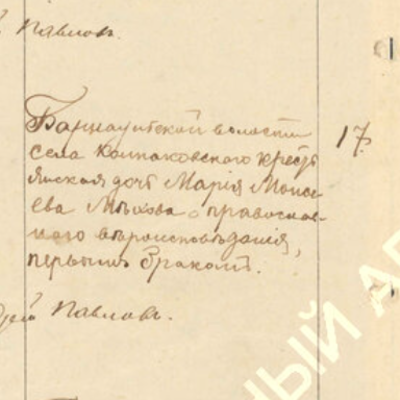 Павловъ.
Барнаульской волости
села Колпаковского кресть
янская дочь Марія Моисе
ева Мѣхова, православ-
ного вѣроисповѣданія,
первымъ бракомъ.
17.
Павловъ.
НЫЙ А